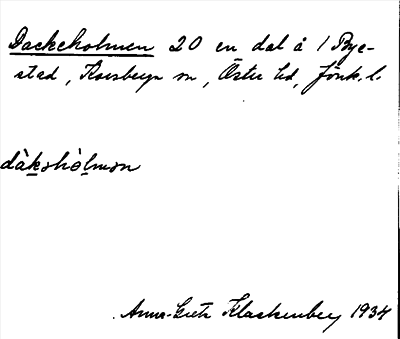 Dackeholmen 20 en del å 1 Bye-
stad, Korsberga sn, Östra hd, Jönk. l.
dàkəhòlmən
Anna-Greta Klackenberg 1934